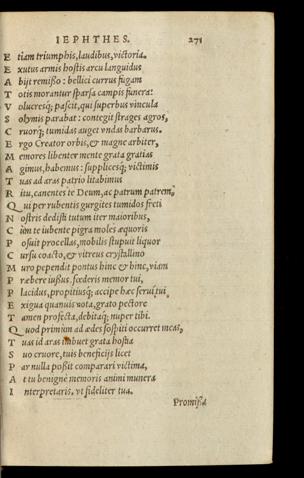 IEPHTHES. 271
E tiam triumphis, laudibus, victoria.
E xutus armis hostis arcu languidus
A bijt remisso: bellici currus fugam
T otis morantur sparsa campis funera:
V olucresq; pascit, qui superbus vincula
S olymis parabat: contegit strages agros,
C ruorq; tumidas auget vndas barbarus.
E rgo Creator orbis, & magne arbiter,
M emores libenter mente grata gratias
A gimus, habemus: supplicesq; victimis
T uas ad aras patrio litabimus
R itu, canentes te Deum, ac patrum patrem,
Q ui per rubentis gurgites tumidos freti
N ostris dedisti tutum iter maioribus,
C ùm te iubente pigra moles æquoris
P osuit procellas, mobilis stupuit liquor
C ursu coacto, & vitreus crystallino
M uro pependit pontus hinc & hinc, viam
P ræbere iussus. fœderis memor tui,
P lacidus, propitiusq; accipe hæc serui tui
E xigua quanuis vota, grato pectore
T amen profecta, debitaq; nuper tibi.
Q uod primùm ad ædes sospiti occurret meas,
T uas id aras imbuet grata hostia
S uo cruore, tuis beneficijs licet
P ar nulla possit comparari victima,
A t tu benignè memoris animi munera
I nterpretaris, vt fideliter tua.
Promissa